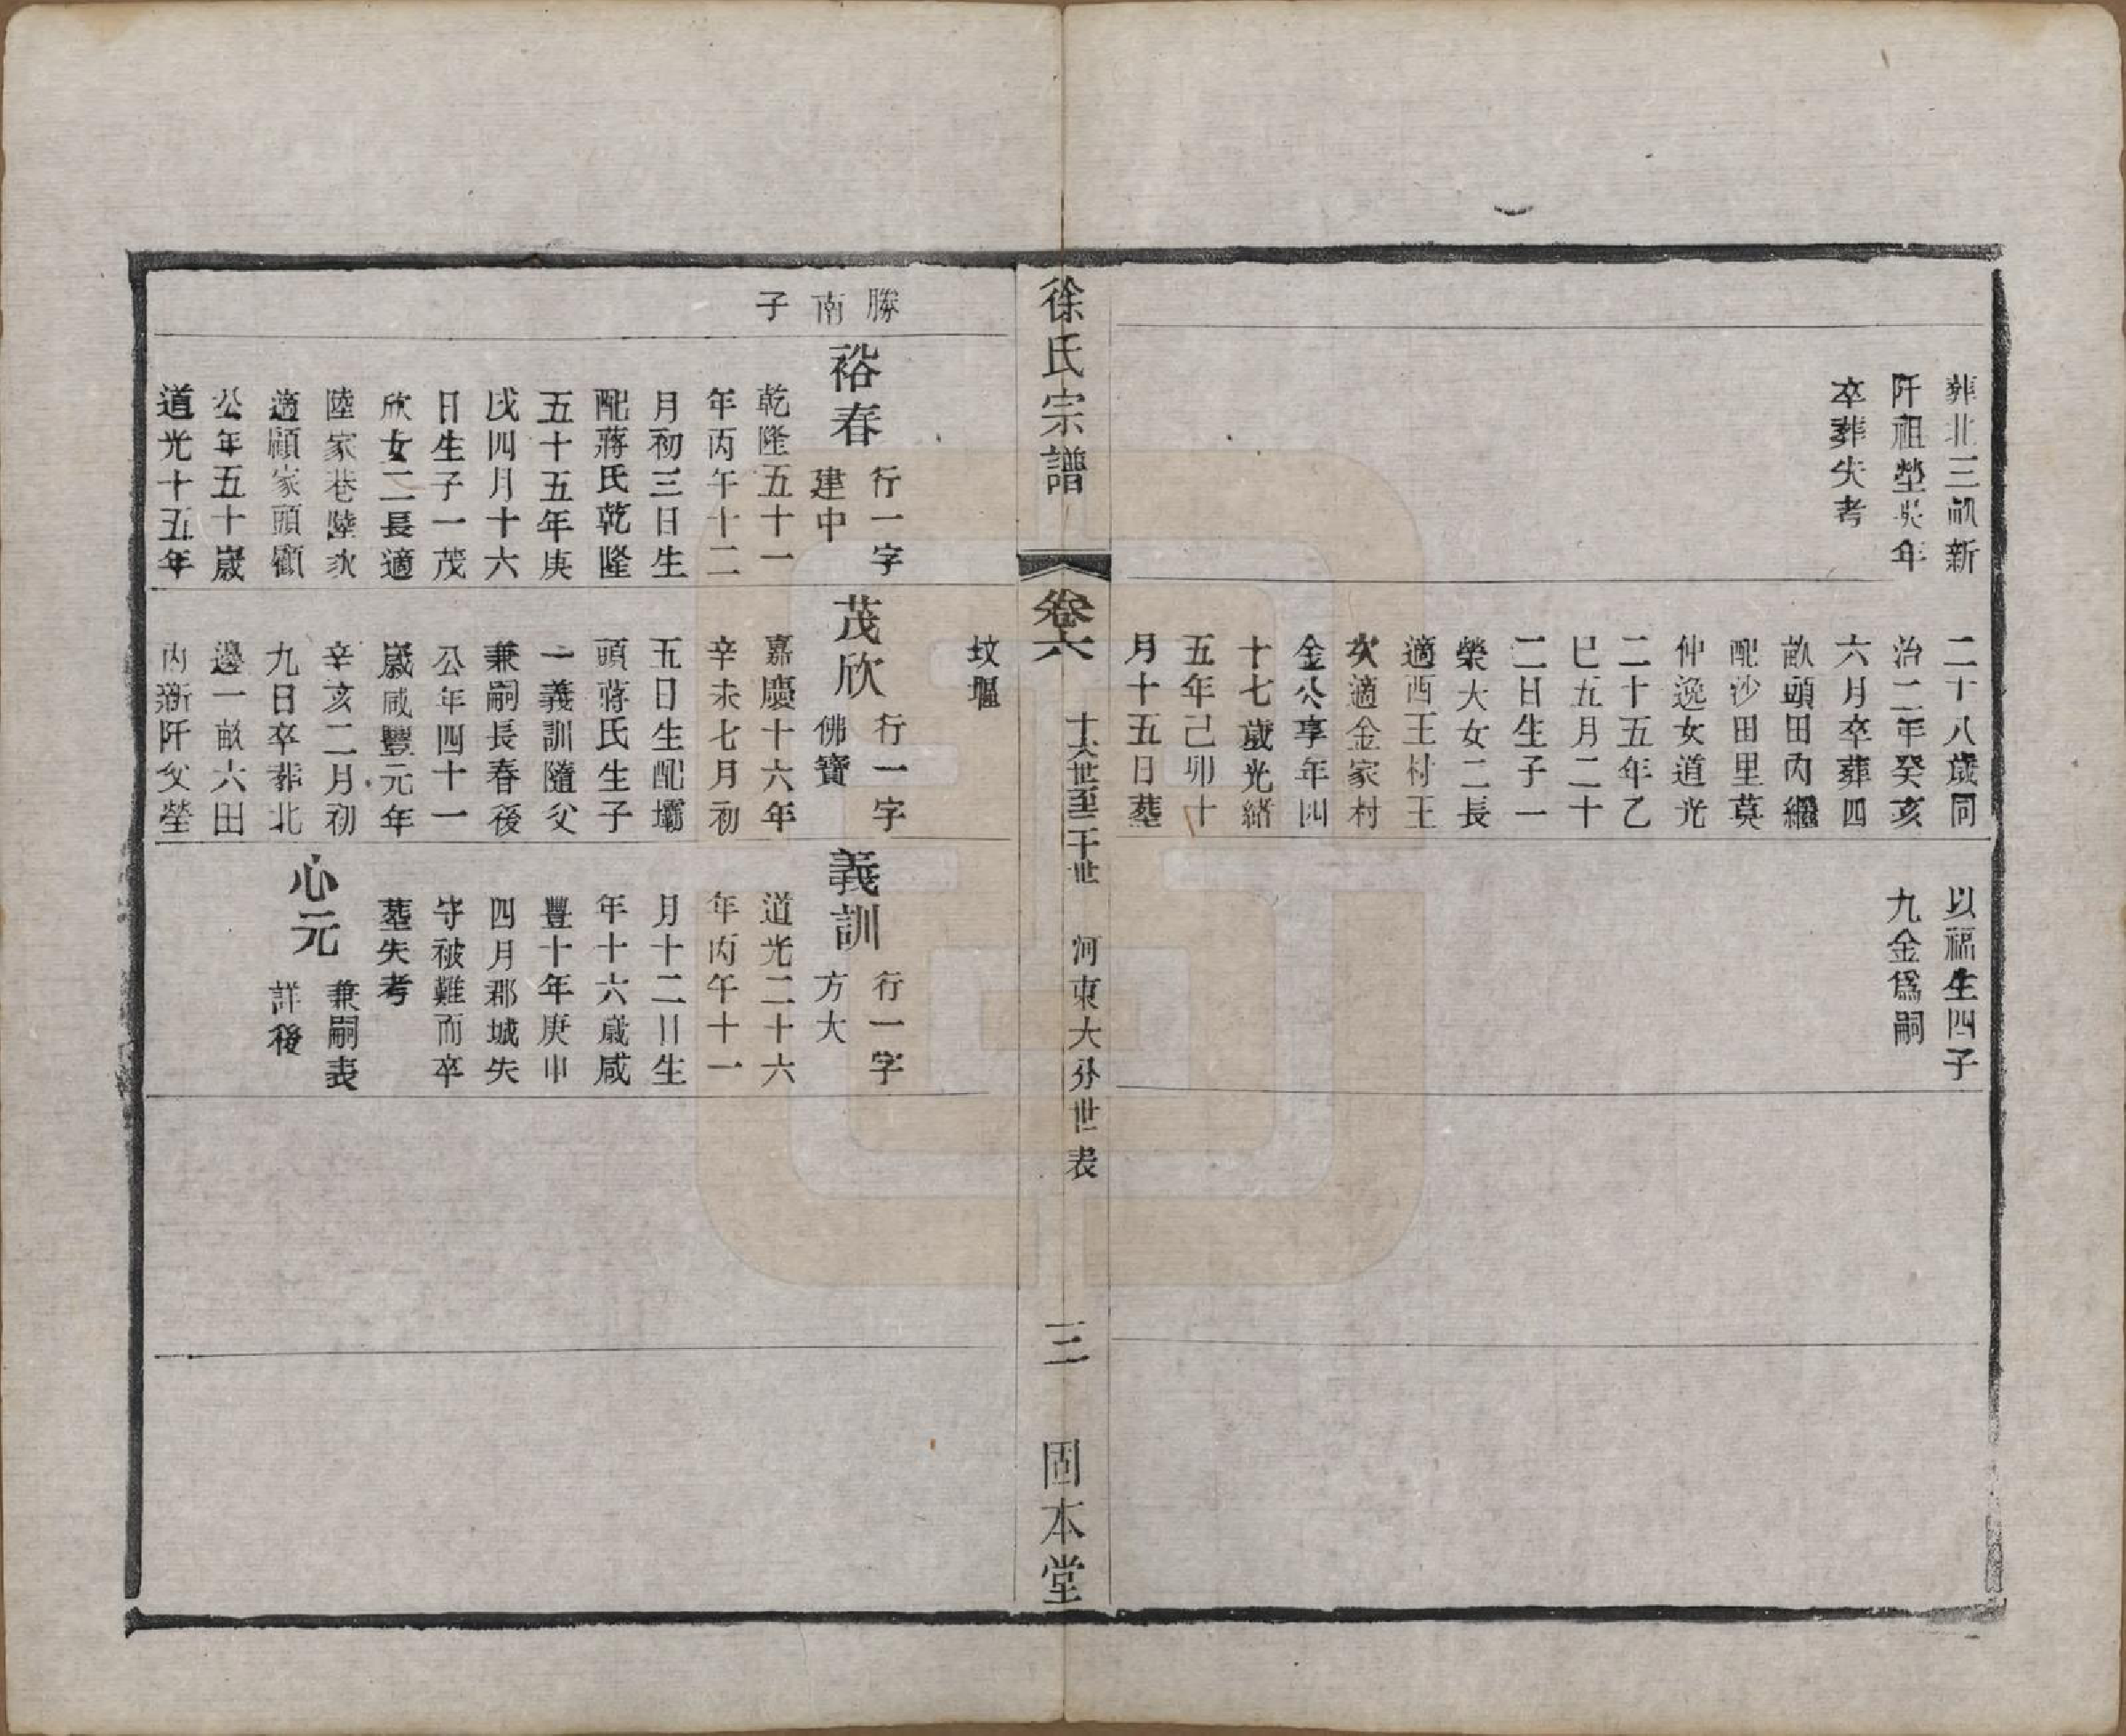 葬北三畝新
阡祖塋吳年
卒葬失考
二十八歲同
治二年癸亥
六月卒葬四
畝頭田內繼
配沙田里莫
仲逸女道光
二十五年乙
巳五月二十
二日生子一
榮大女二長
適西王村王
次適金家村
金公享年四
十七歲光緒
五年己卯十
月十五日葬
以福生四子
九金爲嗣
徐氏宗譜
卷六
十六世至二十世 河東大分世表
三
固本堂
坟堰
勝
南
子
裕春
行一字
建中
乾隆五十一
年丙午十二
月初三日生
配蔣氏乾隆
五十五年庚
戌四月十六
日生子一茂
欣女二長適
陸家巷陸次
適顧家頭顧
公年五十歲
道光十五年
茂欣
行一字
佛寶
嘉慶十六年
辛未七月初
五日生配壩
頭蔣氏生子
一義訓隨父
兼嗣長春後
公年四十一
歲咸豐元年
辛亥二月初
九日卒葬北
邊一畝六田
內新阡父塋
義訓
行一字
方大
道光二十六
年丙午十一
月十二日生
年十六歲咸
豐十年庚申
四月郡城失
守被難而卒
墓失考
心元
兼嗣表
詳後